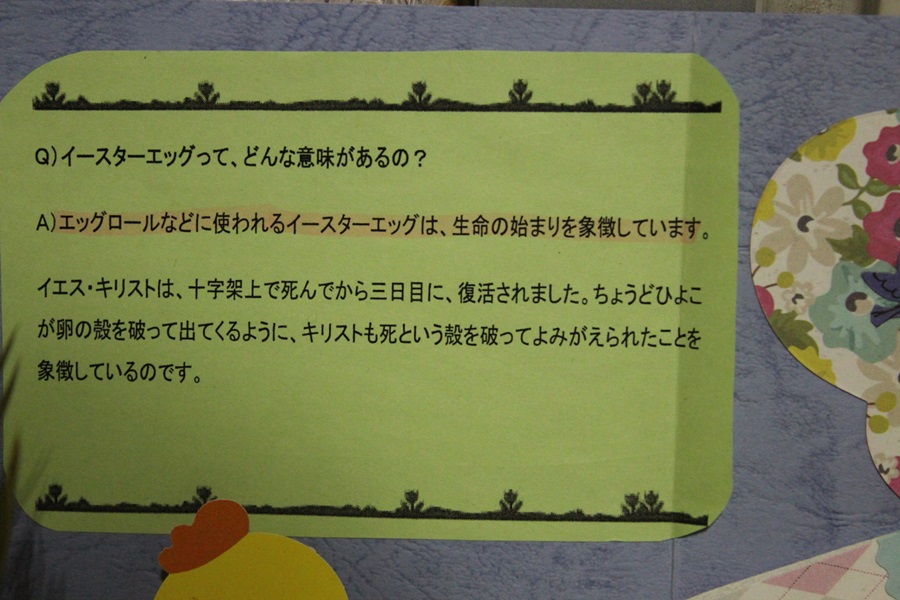 Q)イースターエッグって、どんな意味があるの？
A)エッグロールなどに使われるイースターエッグは、生命の始まりを象徴しています。
イエス・キリストは、十字架上で死んでから三日目に、復活されました。ちょうどひよこ
が卵の殻を破って出てくるように、キリストも死という殻を破ってよみがえられたことを
象徴しているのです。